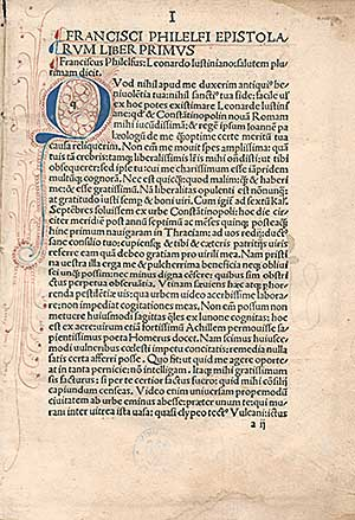 I
FRANCISCI PHILELFI EPISTOLA
RVM LIBER PRIMVS
Franciscus Philelfus: Leonardo Iustiniano: salutem plu
rimam dicit.
Vod nihil apud me duxerim antiqui⁹ be
niuolētia tua: nihil sancti⁹ tua fide: facile us
ex hoc potes existimare Leonarde iustini
ane: &
Cōstātinopolin nouā Romam
mihi iucūdissimā: & regē ipsum Ioānē pa
læologū de me optime certe meritū tua
causa reliquerim. Non em me mouit spes amplissima:
tuis tā crebris: tamq̄ liberalissimis l̄ris mihi
ut tibi
obsequerer: sed ipse tui me charissimum esse iāpridem
multisq̄ cognorā. Nec est
& haberi
me: & esse gratissimū. Nā liberalitas opulenti est
at gratitudo iusti semp & boni uiri. Cum
ad sextū Kal.
Septēbres soluissem ex urbe Cōstātinopoli: hoc die cir
citer meridiē post annū septimū ac mēses quinq̄:
hinc primum nauigarim in Thraciam: ad uos redii: duct⁹
sane consilio tuo: cupiensq̄ & tibi & cæteris patritiis uiris
referre eam quā debeo gratiam pro uirili mea. Nam pristi
na uestra illa erga me & pulcherrima beneficia neq̄ obliui
sci unq̄ possim: nec minus digna cēsere: quibus sim obstri
ctus perpetua obseruātia. Vtinam
hæc
renda pestilētiæ uis: qua urbem uideo acerbissime labora
re: non impediat cogitationes meas. Non em possum non
metuere huiusmodi sagittas
ex lunone cognitas: hoc
est ex acre: uirum etiā fortissimū Achillem permouisse sa
pientissimus poeta Homerus docet. Nam scimus huiusce
modi uulneribus ecclesti impetu concitatis: remedia nulla
satis certa afferri posse. Quo fit: ut quid me agere oporte
at in tanta pernicie: nō intelligam. Itaq̄ mihi gratissimum
sis facturus: si per te certior factus fuero: quid mihi cōsilij
capiundum censeas. Video enim uniuersam propemodū
ciuitatem ab urbe eminus abesse: præter unum
mu
rani inter uitrea ista uasa: quasi clypeo tect⁹ Vulcani: ictus
a ij